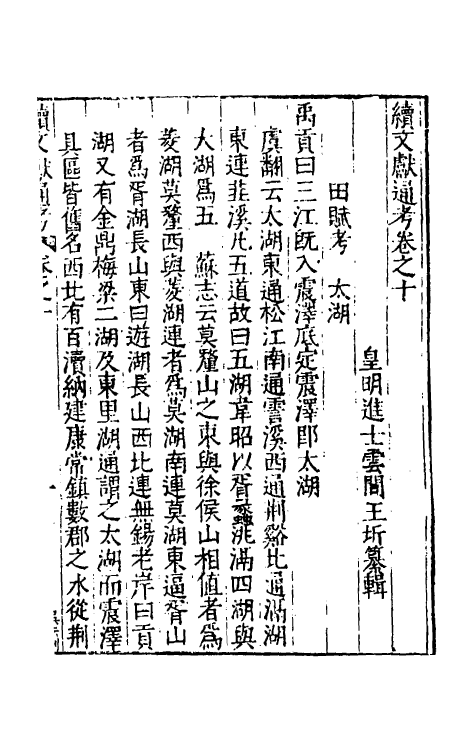 續文獻通考卷之十
皇明進士雲間王圻纂輯
田賦考　太湖
禹貢曰三江旣入震澤底定震澤卽太湖
虞翻云太湖東通松江南通霅溪西通荆谿北通滆湖
東連韭溪凡五道故曰五湖韋昭以胥蠡洮滆四湖與
大湖爲五　蘇志云莫釐山之東與徐侯山相值者爲
菱湖莫釐西與菱湖連者爲莫湖南連莫湖東逼胥山
者爲胥湖長山東曰遊湖長山西北連無錫老岸曰貢
湖又有金鼎梅梁二湖及東里湖通謂之太湖而震澤
具區皆舊名西北有百瀆納建康常鎮數郡之水從荆
續文獻通考　卷之十　一